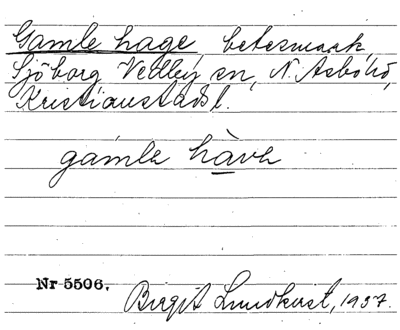 Gamle hage, betesmark,
Sjöborg Vedby sn, N. Åsbo hd,
Kristianstads l.
gamla hàva
Nr 5506.
Birgit Lundkvist, 1937.